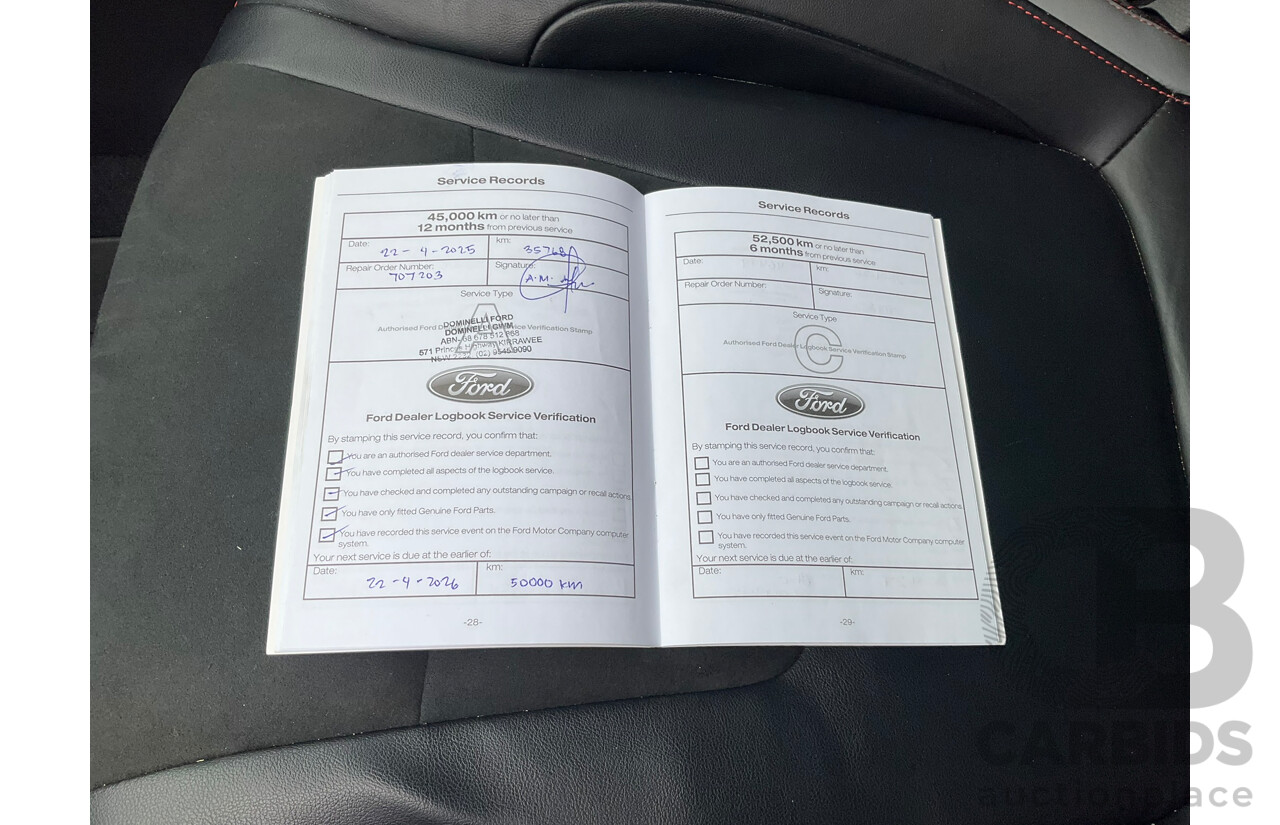 Service Records
45,000 km or no later than
12 months from previous service
Date: 22-4-2025
km: 35768
Repair Order Number: 707203
Signature: A.M.
Service Type
A
Authorised Ford Dealer Logbook Service Verification Stamp
DOMINELLI FORD
DOMINELLI GWM
ABN- 68 678 512 868
571 Princes Highway KIRRAWEE
NSW 2232 (02) 9545 9090
Ford
Ford Dealer Logbook Service Verification
By stamping this service record, you confirm that:
You are an authorised Ford dealer service department.
You have completed all aspects of the logbook service.
You have checked and completed any outstanding campaign or recall actions.
You have only fitted Genuine Ford Parts.
You have recorded this service event on the Ford Motor Company computer
system.
Your next service is due at the earlier of:
Date: 22-4-2026
km: 50000 km
-28-
Service Records
52,500 km or no later than
6 months from previous service
Date:
km:
Repair Order Number:
Signature:
Service Type
C
Authorised Ford Dealer Logbook Service Verification Stamp
Ford
Ford Dealer Logbook Service Verification
By stamping this service record, you confirm that:
You are an authorised Ford dealer service department.
You have completed all aspects of the logbook service.
You have checked and completed any outstanding campaign or recall actions.
You have only fitted Genuine Ford Parts.
You have recorded this service event on the Ford Motor Company computer
system.
Your next service is due at the earlier of:
Date:
km:
-29-
B
CARBIDS
auctionplace